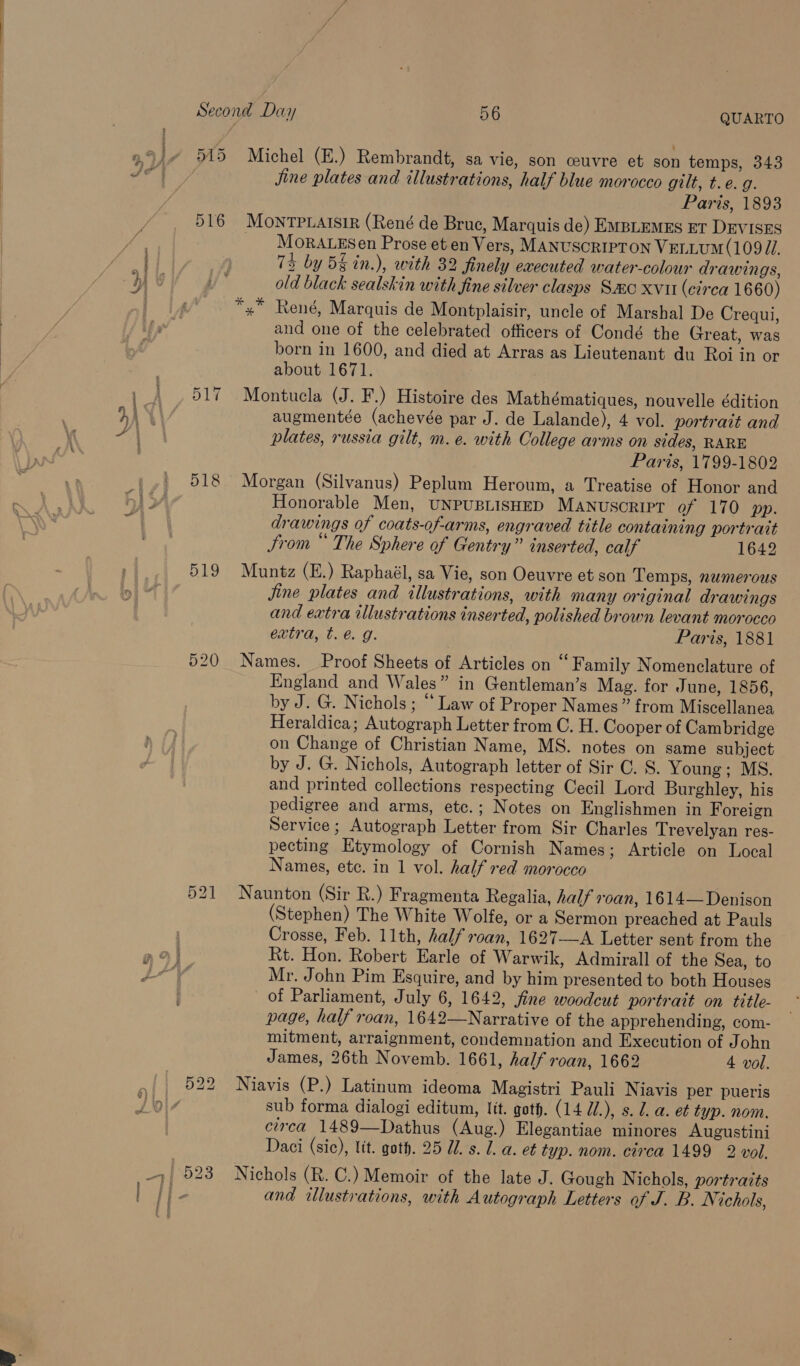 Second Day 56 QUARTO
515 Michel (E.) Rembrandt, sa vie, son œuvre et son temps, 343
fine plates and illustrations, half blue morocco gilt, t. e. g.
Paris, 1893
516 MONTPLAISIR (René de Bruc, Marquis de) EMBLEMES ET DEVISES
MORALES en Prose et en Vers, MANUSCRIPT ON VELLUM (109 ll.
7¾ by 5⅝ in.), with 32 finely executed water-colour drawings,
old black sealskin with fine silver clasps SÆC XVII (circa 1660)
*⁎* René, Marquis de Montplaisir, uncle of Marshal De Crequi,
and one of the celebrated officers of Condé the Great, was
born in 1600, and died at Arras as Lieutenant du Roi in or
about 1671.
517 Montucla (J. F.) Histoire des Mathématiques, nouvelle édition
augmentée (achevée par J. de Lalande), 4 vol. portrait and
plates, russia gilt, m. e. with College arms on sides, RARE
Paris, 1799-1802
518 Morgan (Silvanus) Peplum Heroum, a Treatise of Honor and
Honorable Men, UNPUBLISHED MANUSCRIPT of 170 pp.
drawings of coats-of-arms, engraved title containing portrait
from “The Sphere of Gentry” inserted, calf 1642
519 Muntz (E.) Raphaël, sa Vie, son Oeuvre et son Temps, numerous
fine plates and illustrations, with many original drawings
and extra illustrations inserted, polished brown levant morocco
extra, t. e. g. Paris, 1881
520 Names. Proof Sheets of Articles on “Family Nomenclature of
England and Wales” in Gentleman’s Mag. for June, 1856,
by J. G. Nichols; “Law of Proper Names” from Miscellanea
Heraldica; Autograph Letter from C. H. Cooper of Cambridge
on Change of Christian Name, MS. notes on same subject
by J. G. Nichols, Autograph letter of Sir C. S. Young; MS.
and printed collections respecting Cecil Lord Burghley, his
pedigree and arms, etc.; Notes on Englishmen in Foreign
Service; Autograph Letter from Sir Charles Trevelyan res-
pecting Etymology of Cornish Names; Article on Local
Names, etc. in 1 vol. half red morocco
521 Naunton (Sir R.) Fragmenta Regalia, half roan, 1614—Denison
(Stephen) The White Wolfe, or a Sermon preached at Pauls
Crosse, Feb. 11th, half roan, 1627—A Letter sent from the
Rt. Hon. Robert Earle of Warwik, Admirall of the Sea, to
Mr. John Pim Esquire, and by him presented to both Houses
of Parliament, July 6, 1642, fine woodcut portrait on title-
page, half roan, 1642—Narrative of the apprehending, com-
mitment, arraignment, condemnation and Execution of John
James, 26th Novemb. 1661, half roan, 1662 4 vol.
522 Niavis (P.) Latinum ideoma Magistri Pauli Niavis per pueris
sub forma dialogi editum, lit. goth. (14 ll.), s. l. a. et typ. nom.
circa 1489—Dathus (Aug.) Elegantiae minores Augustini
Daci (sic), lit. goth. 25 ll. s. l. a. et typ. nom. circa 1499 2 vol.
523 Nichols (R. C.) Memoir of the late J. Gough Nichols, portraits
and illustrations, with Autograph Letters of J. B. Nichols,